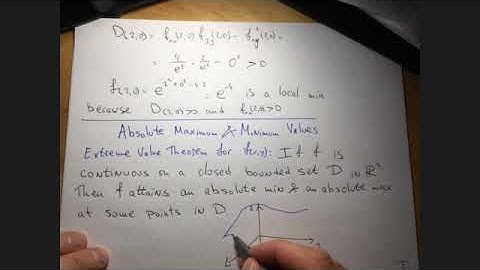 D(2,0) = f_xx(2,0) f_yy(2,0) - f_xy²(2,0) =
= 2/e⁴ · 2/e⁴ - 0² > 0
f(2,0) = e^ = e⁻⁴ is a local min
because D(2,0)>0 and f_xx(2,0)>0
Absolute Maximum & Minimum Values
Extreme Value Theorem for f(x,y): If f is
continuous on a closed bounded set D in ℝ²
Then f attains an absolute min & an absolute max
at some points in D.
z